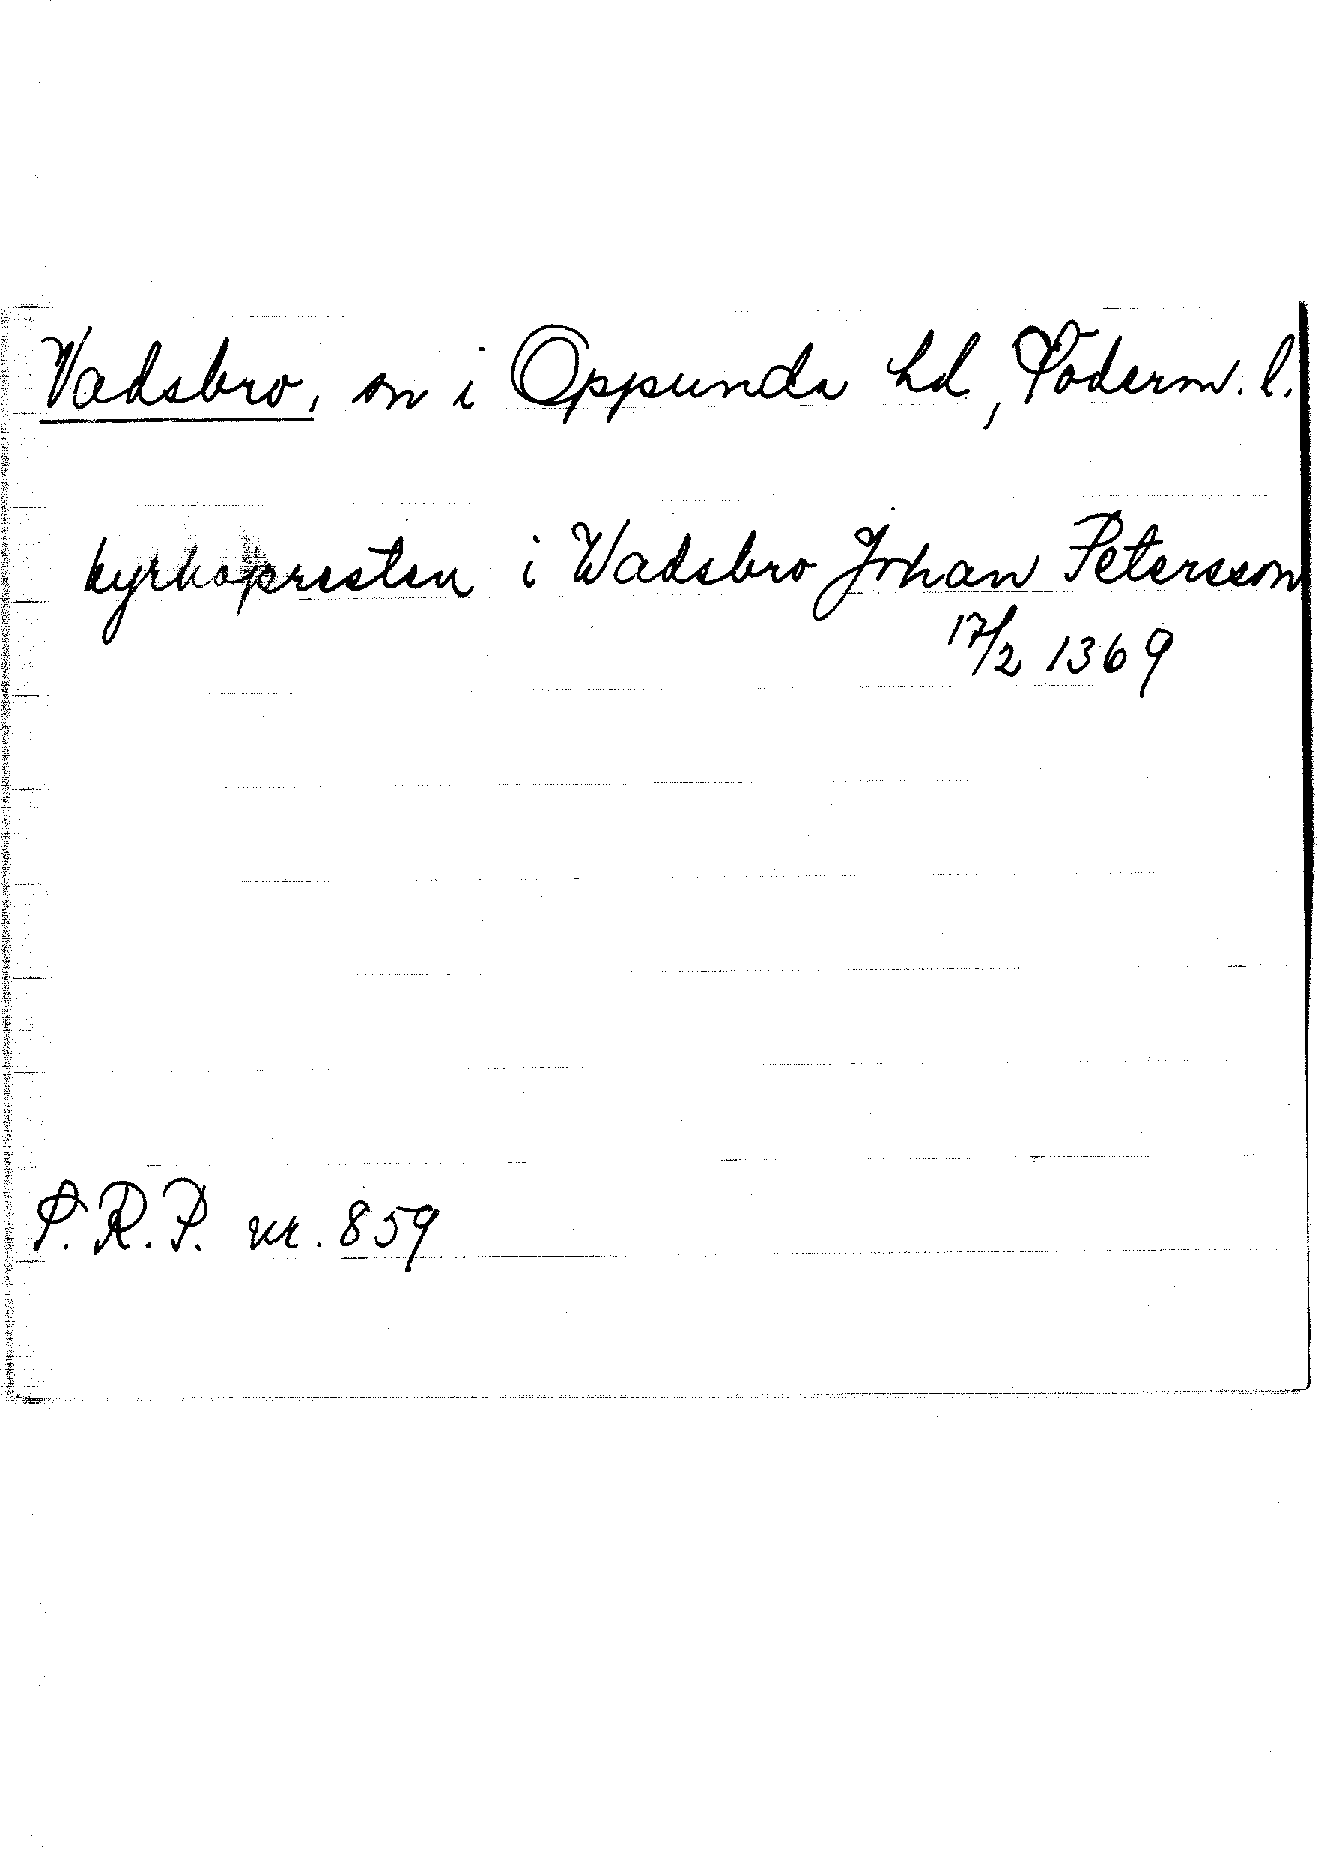 Vadsbro, sn i Oppunda hd, Söderm. l.
kyrkopresten i Wadsbro Johan Petersson
17/2 1369
S.R.P. nr. 859